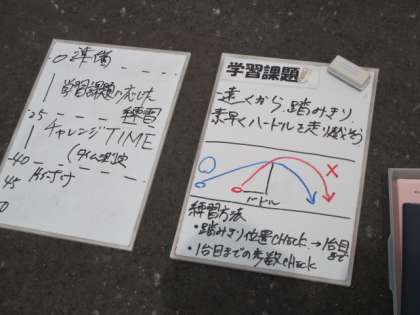 0 準備
学習課題に応じた
練習
25
チャレンジTIME
(タイム測定
40
45 片づけ
学習課題
遠くから踏みきり、
素早くハードルを走り越そう
○
×
ハードル
練習方法
・踏みきり位置check→1台目まで
・1台目までの歩数check